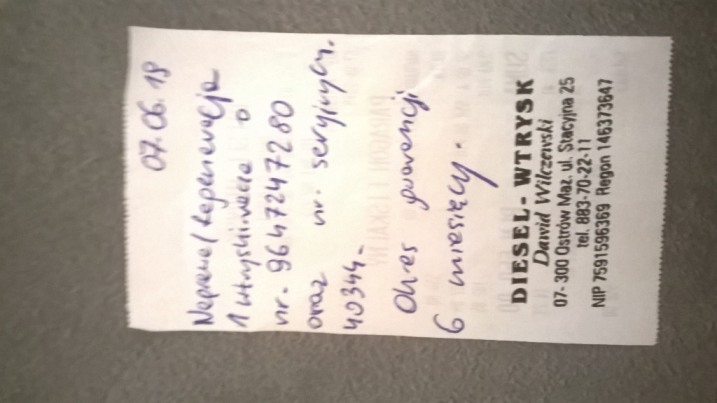 07.06.18
Naprawa/Regeneracja
1 wtryskiwacza o
nr. 9647247280
oraz nr. seryjnym.
40344-
Okres gwarancji
6 miesięcy.
DIESEL - WTRYSK
Dawid Wilczewski
07- 300 Ostrów Maz. ul. Stacyjna 25
tel. 883-70-22-11
NIP 7591596369 Regon 146373647